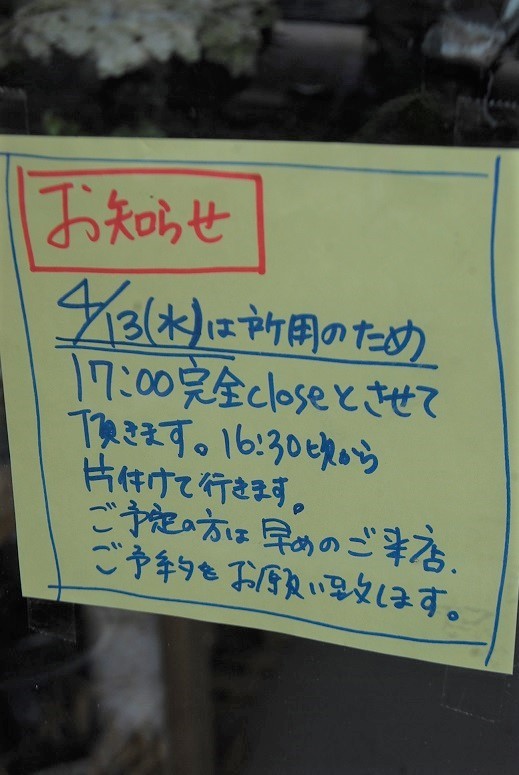 お知らせ
4/13(水)は所用のため
17:00完全closeとさせて
頂きます。16:30頃から
片付けて行きます。
ご予定の方は早めのご来店.
ご予約をお願い致します。